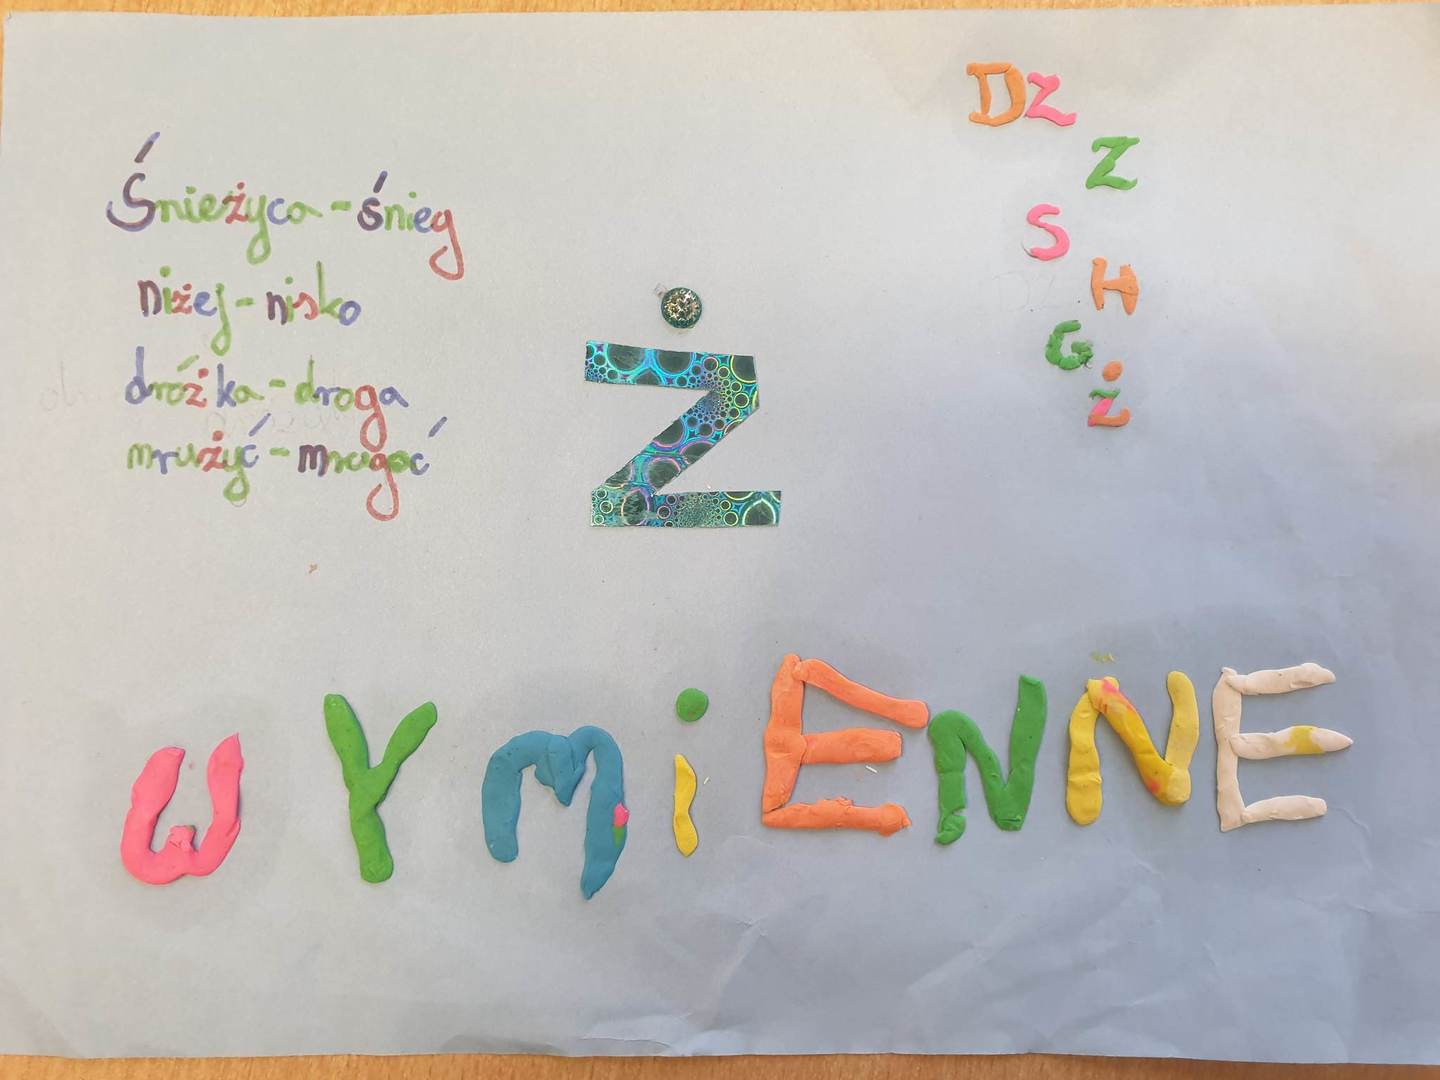 Śnieżyca - śnieg
niżej - nisko
dróżka - droga
mrużyć - mrugać
DZ
Z
S
H
G
Ż
Ż
WYMiENNE